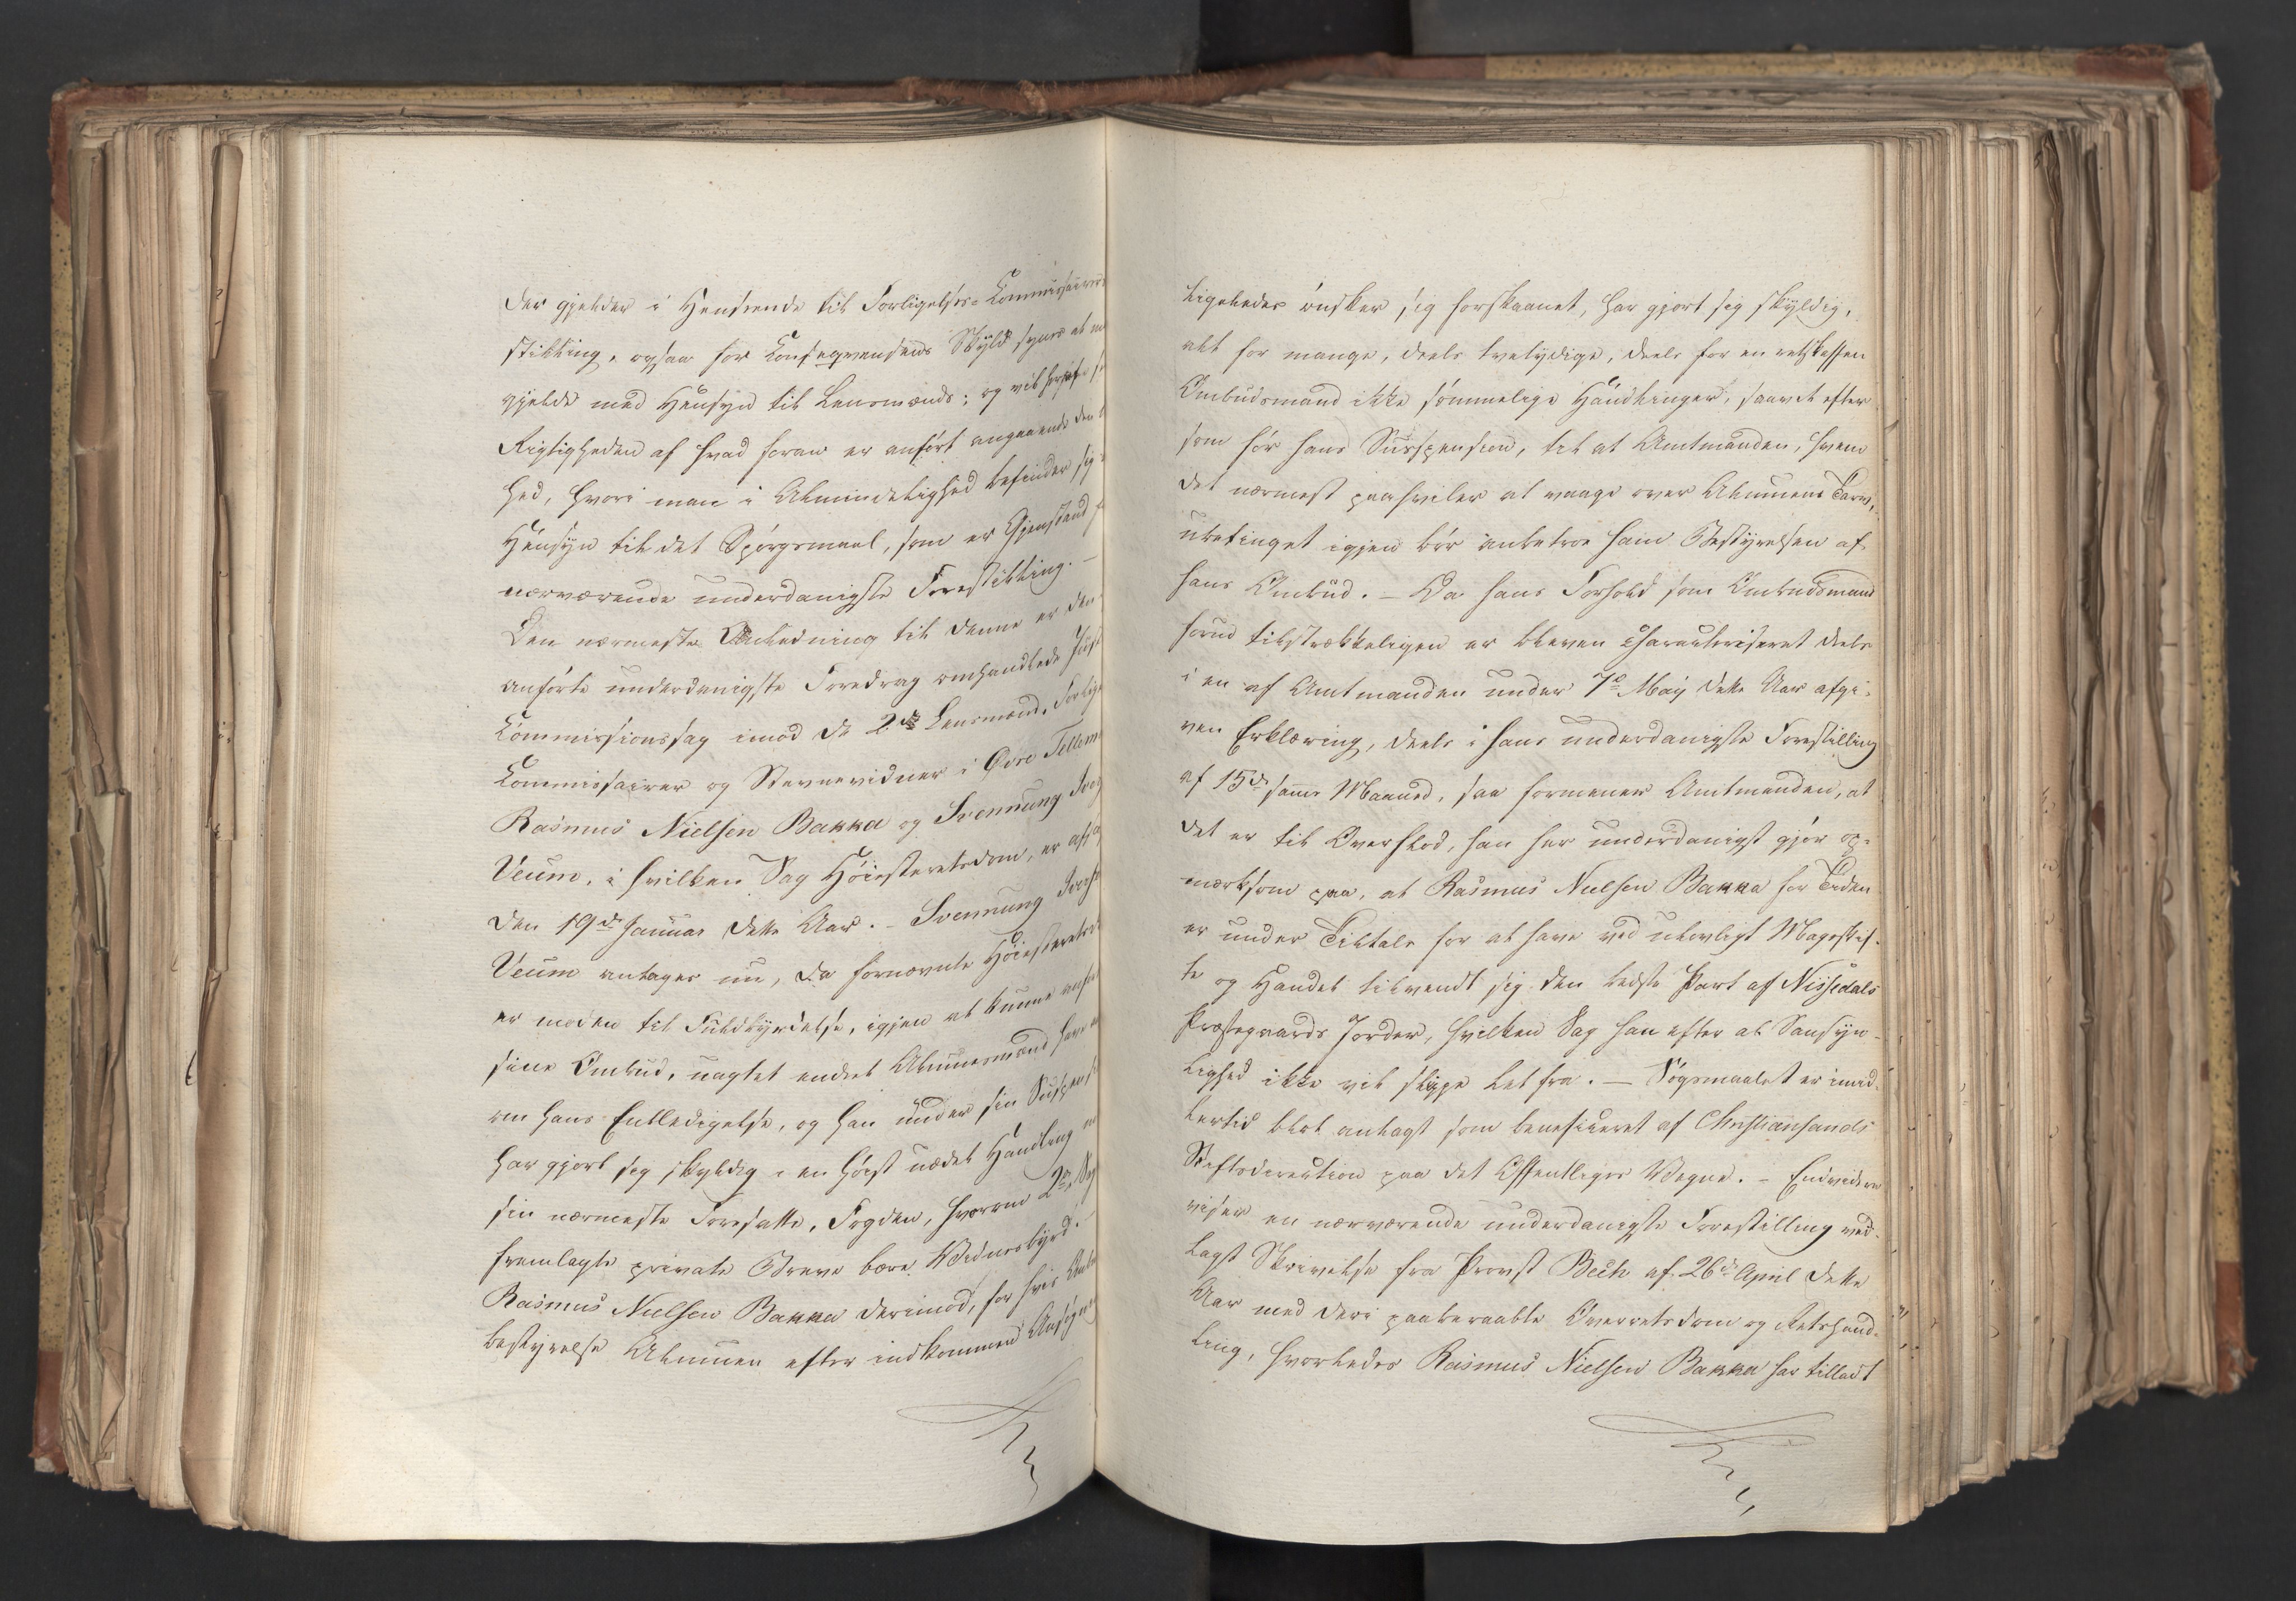 der gjelder i Henseende til Forligelses-Commissairers
Stilling, ogsaa for Consequentsens Skyld synes at
gjelde med Hensyn til Lensmænd; og vil
Rigtigheden af hvad foran er anført angaaende den
hed, hvori man i Almindelighed befinder sig
Hensyn til det Spørgsmaal, som er Gjenstand f
nærværende underdanigste Forestilling. –
Den nærmeste Anledning til denne er den
anførte underdanigste Foredrag omhandlede Just
Commissionssag imod de 2de Lensmænd, Forlig
Commissairer og Stevnevidner i Øvre Tellem
Rasmus Nielsen Bakka og Svennung
Veum, i hvilken Sag Høiesteretsdom, er afs
den 19de Januar dette Aar. – Svennung
Veum antages nu, da fornævnte Høiesteretsd
er moden til Fuldbyrdelse, igjen at kunne
sine Ombud, uagtet endeel Almuesmænd have
om hans Entledigelse, og han under sin Suspensi
har gjort sig skyldig i en høist uædel Handling
sin nærmeste Foresatte, Fogden, hvorom 2de
fremlagte private Breve bære Vidnesbyrd.
Rasmus Nielsen Bakka derimod, for hvis
bestyrelse Almuen efter indkommen Ansøgning
ligeledes ønsker sig forskaanet, har gjort sig skyldig,
alt for mange, deels tvetydige, deels for en retskaffen
Ombudsmand ikke sømmelige Handlinger, saavel efter
som før hans Suspension, til at Amtmanden, hvem
det nærmest paahviler at vaage over Almuens Tarv,
ubetinget igjen bør anbetroe ham Bestyrelsen af
hans Ombud. – Da hans Forhold som Ombudsmand
forud tilstrækkeligen er bleven charakteriseret deels
i en af Amtmanden under 7de May dette Aar afgi-
ven Erklæring, deels i hans underdanigste Forestilling
af 15de samme Maaned, saa formener Amtmanden, at
det er til Overflod, han her underdanigst gjør op-
mærksom paa, at Rasmus Nielsen Bakka for Tiden
er under Tiltale for at have ved ulovligt Mageskif-
te og Handel tilvendt sig den bedste Part af Nissedals
Præstegaards Jorder, hvilken Sag han efter al Sandsyn-
lighed ikke vil slippe let fra. – Søgsmaalet er imid-
lertid blot anlagt som beneficeret af Christiansands
Stiftsdirection paa det Offentliges Vegne. – Endvidere
viser en nærværende underdanigste Forestilling ved-
lagt Skrivelse fra Provst Bech af 26de April dette
Aar med deri paaberaabte Overretsdom og Retshand-
ling, hvorledes Rasmus Nielsen Bakka har tilladt